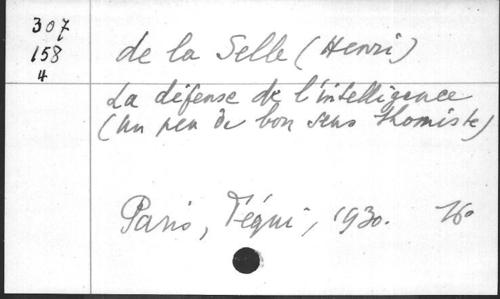 307
158
4
de la Selle (Henri)
La défense de l'intelligence
(un peu de bon sens thomiste)
Paris, Téqui, 1930. 16°